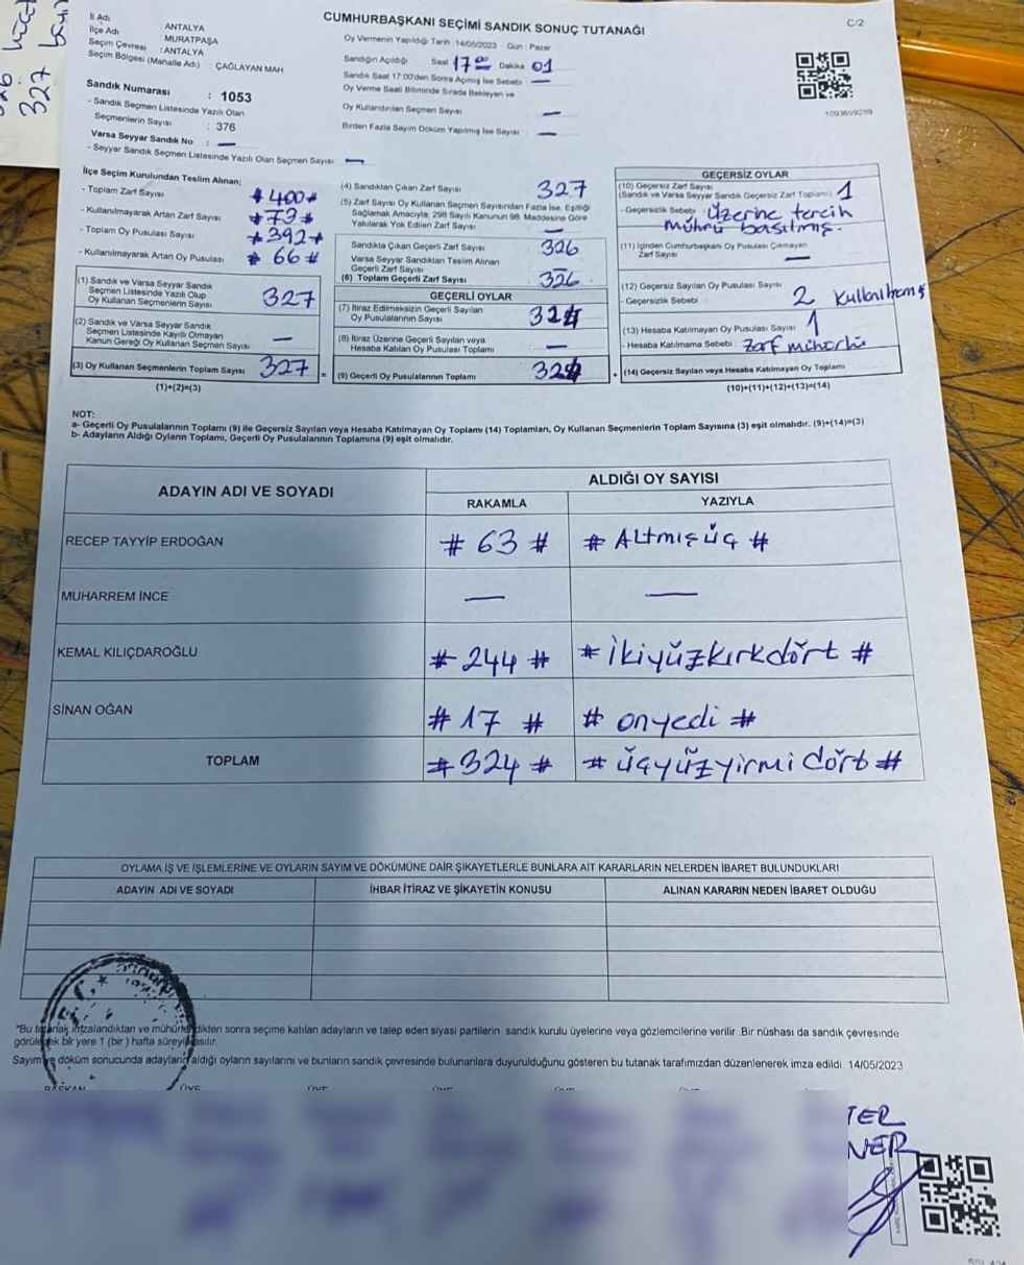 326
327
CUMHURBAŞKANI SEÇİMİ SANDIK SONUÇ TUTANAĞI
C/2
İl Adı ANTALYA
İlçe Adı : MURATPAŞA
Seçim Çevresi : ANTALYA
Seçim Bölgesi (Mahalle Adı) : ÇAĞLAYAN MAH
Sandık Numarası : 1053
- Sandık Seçmen Listesinde Yazılı Olan
Seçmenlerin Sayısı : 376
Varsa Seyyar Sandık No : —
- Seyyar Sandık Seçmen Listesinde Yazılı Olan Seçmen Sayısı —
Oy Vermenin Yapıldığı Tarih : 14/05/2023 Gün : Pazar
Sandığın Açıldığı Saat 17 00 Dakika 01
Sandık Saat 17:00'den Sonra Açılmış İse Sebebi —
Oy Verme Saati Bitiminde Sırada Bekleyen ve
Oy Kullandırılan Seçmen Sayısı —
Birden Fazla Sayım Döküm Yapılmış İse Sayısı —
İlçe Seçim Kurulundan Teslim Alınan:
- Toplam Zarf Sayısı #400#
- Kullanılmayarak Artan Zarf Sayısı #73#
- Toplam Oy Pusulası Sayısı #392#
- Kullanılmayarak Artan Oy Pusulası # 66#
(1) Sandık ve Varsa Seyyar Sandık
Seçmen Listesinde Yazılı Olup
Oy Kullanan Seçmenlerin Sayısı 327
(2) Sandık ve Varsa Seyyar Sandık
Seçmen Listesinde Kayıtlı Olmayan
Kanun Gereği Oy Kullanan Seçmen Sayısı —
(3) Oy Kullanan Seçmenlerin Toplam Sayısı 327
(1)+(2)=(3)
(4) Sandıktan Çıkan Zarf Sayısı 327
(5) Zarf Sayısı Oy Kullanan Seçmen Sayısından Fazla İse, Eşitliği
Sağlamak Amacıyla, 298 Sayılı Kanunun 98. Maddesine Göre
Yakılarak Yok Edilen Zarf Sayısı —
Sandıkta Çıkan Geçerli Zarf Sayısı 326
Varsa Seyyar Sandıktan Teslim Alınan
Geçerli Zarf Sayısı —
(6) Toplam Geçerli Zarf Sayısı 326
GEÇERLİ OYLAR
(7) İtiraz Edilmeksizin Geçerli Sayılan
Oy Pusulalarının Sayısı 324
(8) İtiraz Üzerine Geçerli Sayılan veya
Hesaba Katılan Oy Pusulası Toplamı —
= (9) Geçerli Oy Pusulalarının Toplamı 324 +
GEÇERSİZ OYLAR
(10) Geçersiz Zarf Sayısı
(Sandık ve Varsa Seyyar Sandık Geçersiz Zarf Toplamı) 1
- Geçersizlik Sebebi üzerine tercih
mührü basılmış.
(11) İçinden Cumhurbaşkanı Oy Pusulası Çıkmayan
Zarf Sayısı —
(12) Geçersiz Sayılan Oy Pusulası Sayısı
- Geçersizlik Sebebi 2 Kullanılmamış
(13) Hesaba Katılmayan Oy Pusulası Sayısı 1
- Hesaba Katılmama Sebebi zarf mühürlü
(14) Geçersiz Sayılan veya Hesaba Katılmayan Oy Toplamı
(10)+(11)+(12)+(13)=(14)
NOT:
a- Geçerli Oy Pusulalarının Toplamı (9) ile Geçersiz Sayılan veya Hesaba Katılmayan Oy Toplamı (14) Toplamları, Oy Kullanan Seçmenlerin Toplam Sayısına (3) eşit olmalıdır. (9)+(14)=(3)
b- Adayların Aldığı Oyların Toplamı, Geçerli Oy Pusulalarının Toplamına (9) eşit olmalıdır.
ADAYIN ADI VE SOYADI
ALDIĞI OY SAYISI
RAKAMLA YAZIYLA
RECEP TAYYİP ERDOĞAN # 63 # # Altmışüç #
MUHARREM İNCE — —
KEMAL KILIÇDAROĞLU # 244 # # ikiyüzkırkdört #
SİNAN OĞAN # 17 # # onyedi #
TOPLAM # 324 # # üçyüzyirmidört #
OYLAMA İŞ VE İŞLEMLERİNE VE OYLARIN SAYIM VE DÖKÜMÜNE DAİR ŞİKAYETLERLE BUNLARA AİT KARARLARIN NELERDEN İBARET BULUNDUKLARI
ADAYIN ADI VE SOYADI İHBAR İTİRAZ VE ŞİKAYETİN KONUSU ALINAN KARARIN NEDEN İBARET OLDUĞU
"Bu tutanak imzalandıktan ve mühürlendikten sonra seçime katılan adayların ve talep eden siyasi partilerin sandık kurulu üyelerine veya gözlemcilerine verilir. Bir nüshası da sandık çevresinde
görülecek bir yere 1 (bir) hafta süreyle asılır.
Sayım ve döküm sonucunda adayların aldığı oyların sayılarını ve bunların sandık çevresinde bulunanlara duyurulduğunu gösteren bu tutanak tarafımızdan düzenlenerek imza edildi. 14/05/2023
BAŞKAN ÜYE ÜYE ÜYE
TER
NER